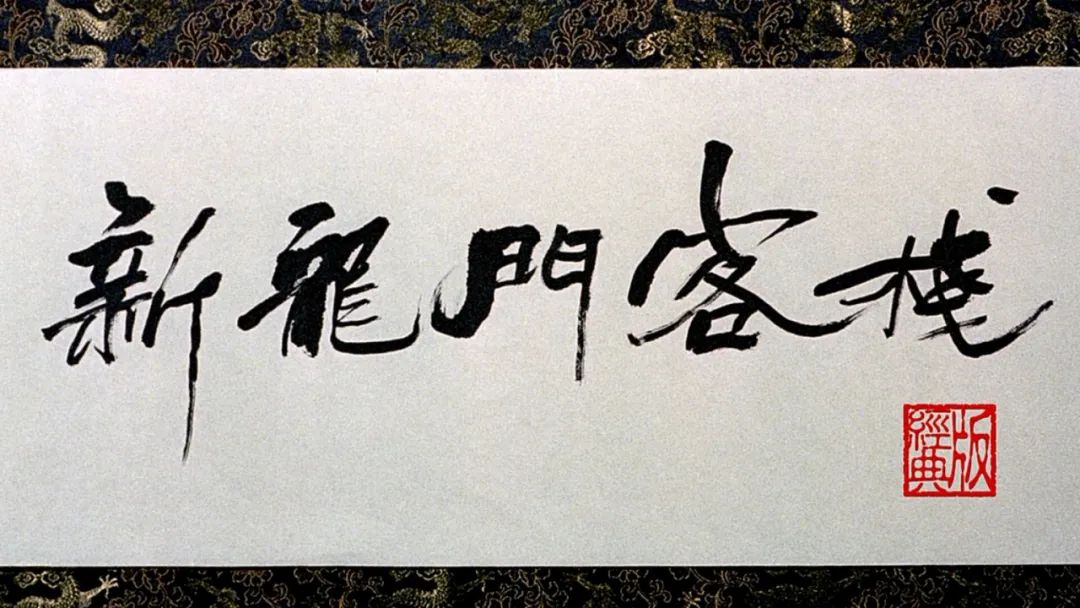 新龍門客棧
經典版